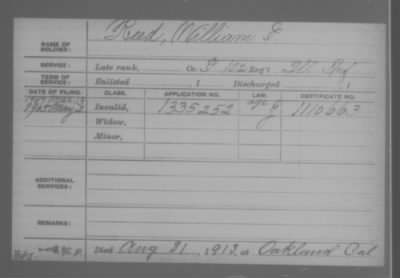 Reed, William G.
NAME OF SOLDIER:
SERVICE: Late rank, Co. G, 122 Reg't Ill Inf
TERM OF SERVICE: Enlisted , 1 Discharged , 1
DATE OF FILING. CLASS. APPLICATION NO. LAW. CERTIFICATE NO.
1905 May 2 Invalid, 1335252 age g 1110663
Widow,
Minor,
ADDITIONAL SERVICES:
REMARKS:
Died Aug 31, 1913, at Oakland Cal